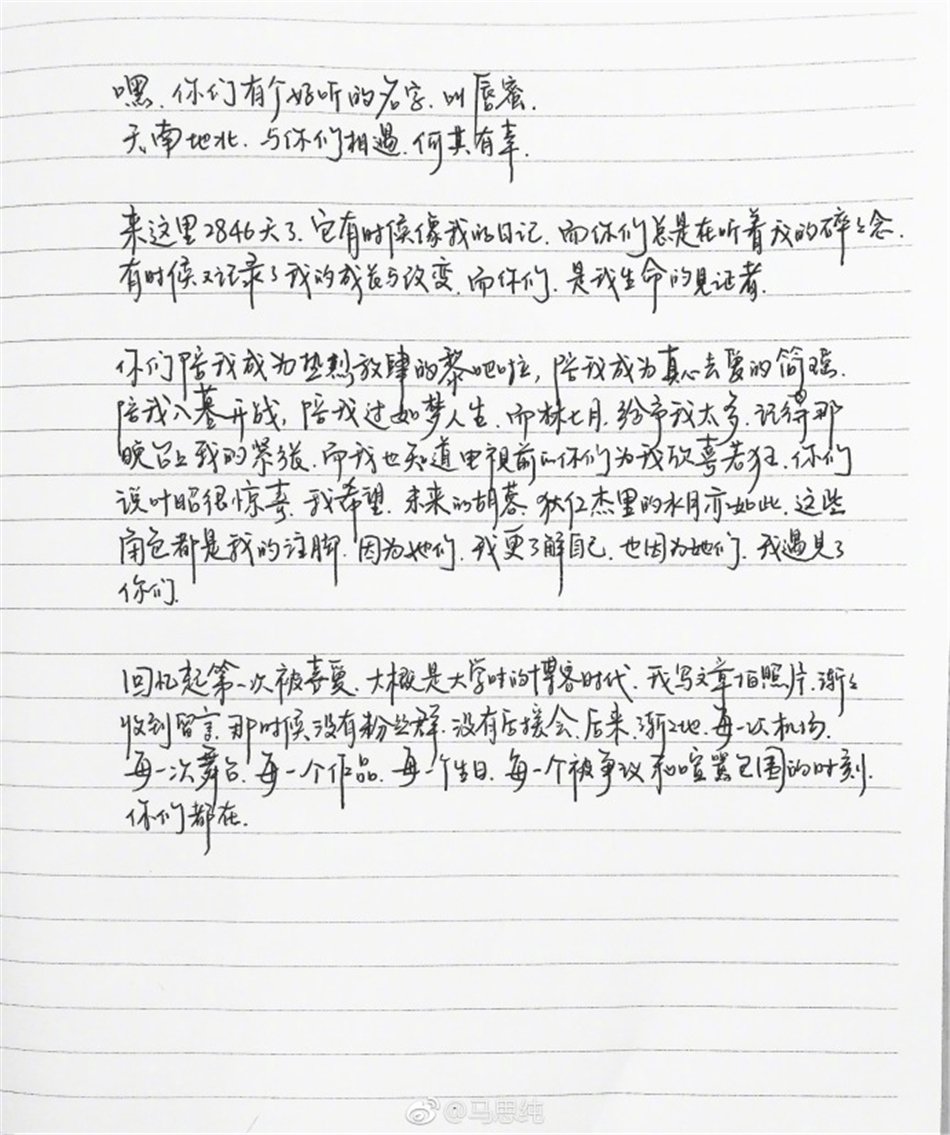 嘿.你们有个好听的名字.叫唇蜜.
天南地北.与你们相遇.何其有幸.
来这里2846天了.它有时候像我的日记.而你们总是在听着我的碎々念.
有时候又记录了我的成长与改变.而你们.是我生命的见证者.
你们陪我成为热烈放肆的黎吧啦,陪我成为真心去爱的简瑶.
陪我入墓开战,陪我过如梦人生.而林七月.给予我太多.记得那
晚台上我的紧张.而我也知道电视前的你们为我欣喜若狂.你们
说叶昭很惊喜.我希望.未来的胡蓉.狄仁杰里的水月亦如此.这些
角色都是我的注脚.因为她们.我更了解自己.也因为她们.我遇见了
你们.
回忆起第一次被喜爱.大概是大学时的博客时代.我写文章拍照片.渐々
收到留言.那时候没有粉丝群.没有后援会.后来.渐々地.每一次机场.
每一次舞台.每一个作品.每一个生日.每一个被争议和喧嚣包围的时刻.
你们都在.
@马思纯